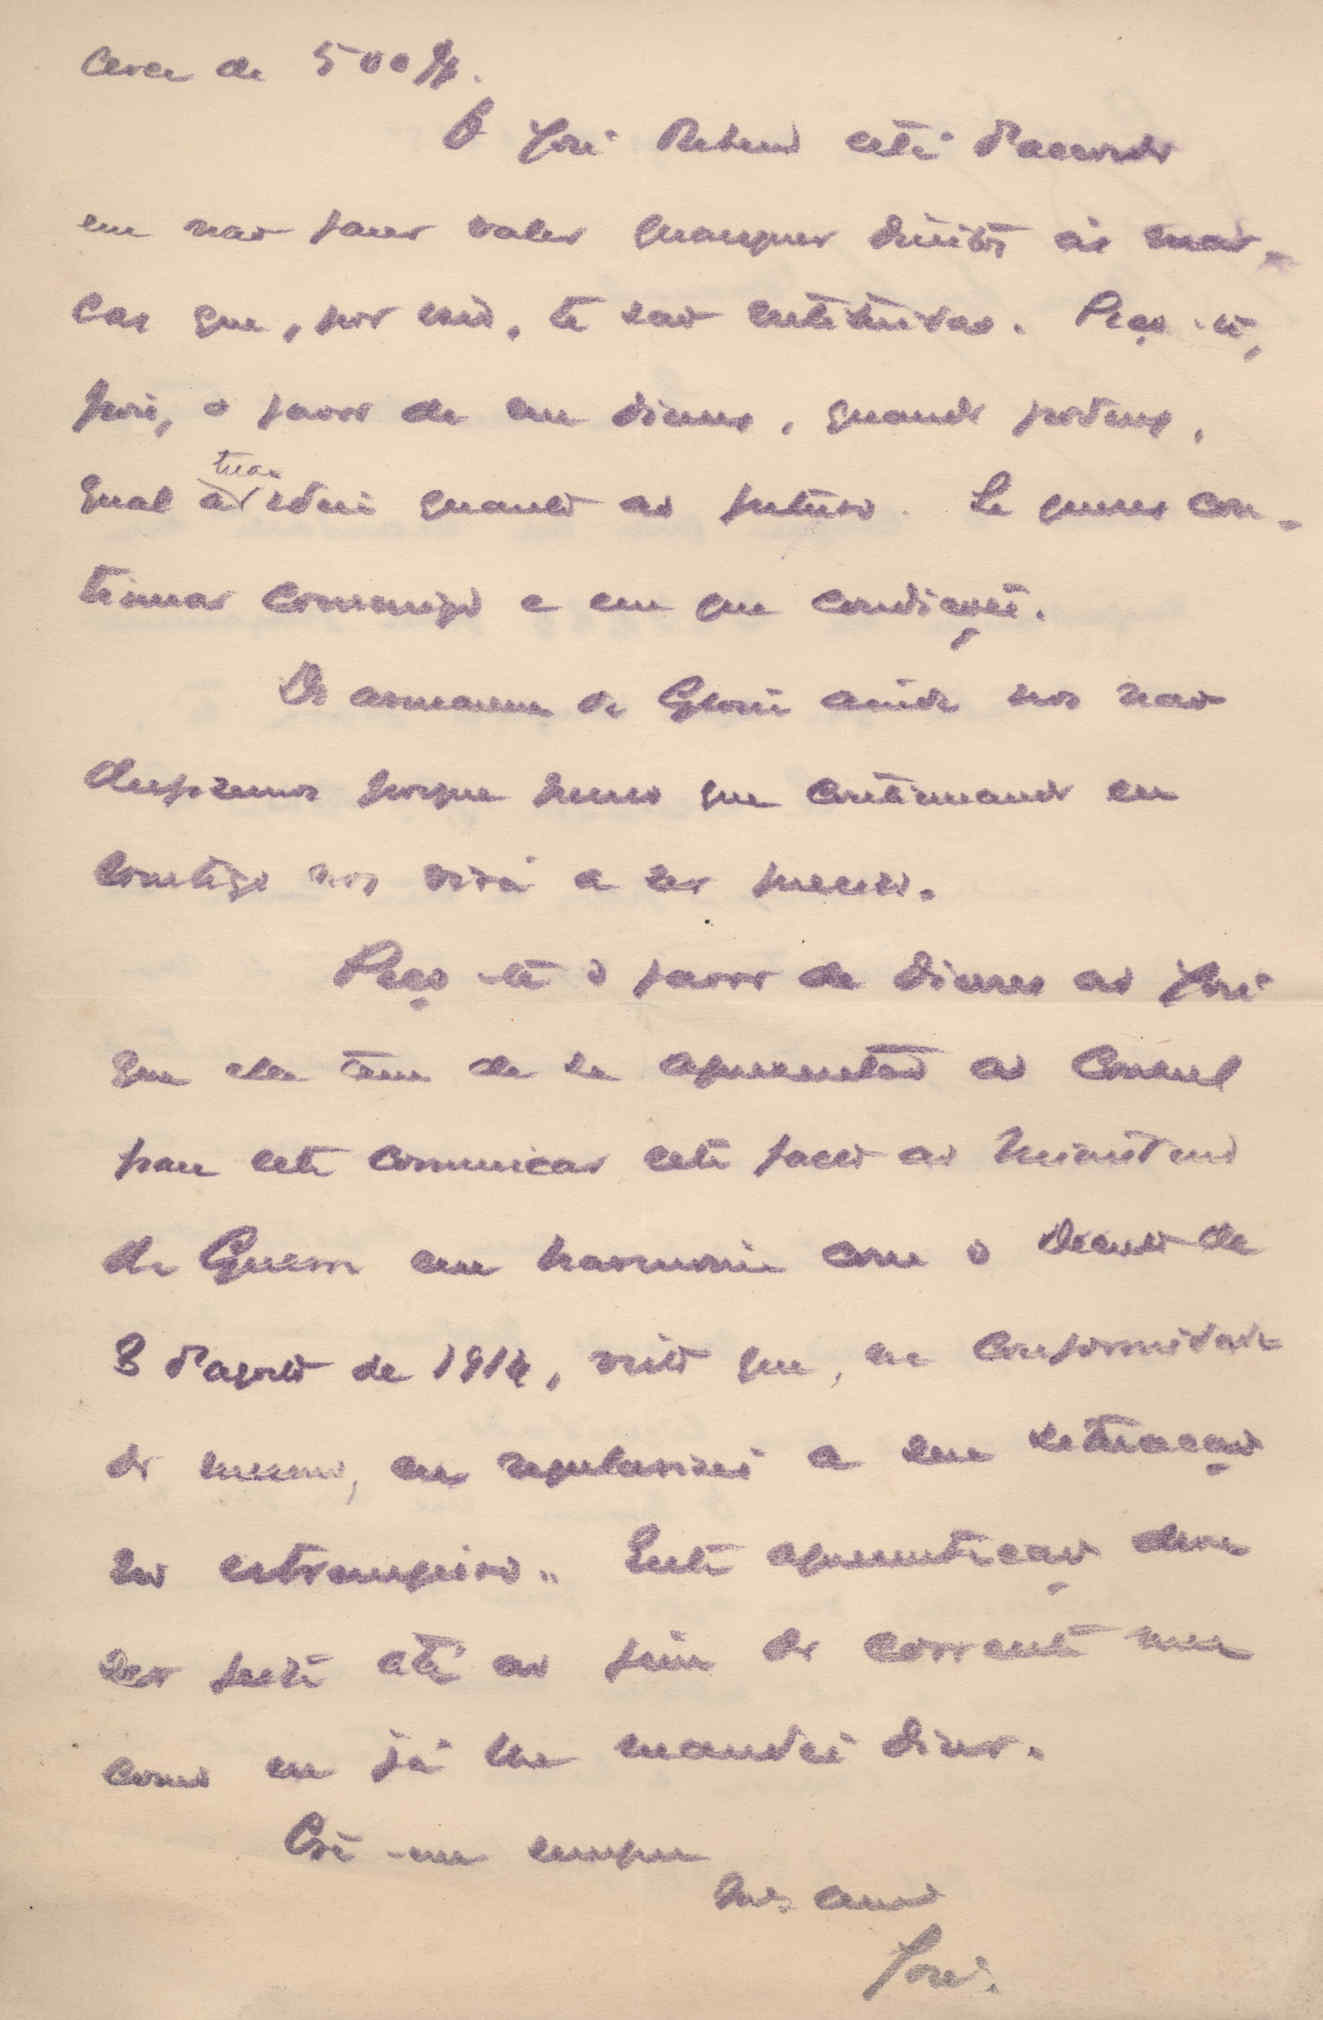 cerca de 500$.
O José Rebelo está d'accordo
em não fazer valer quaesquer direitos ás mar-
cas que, por isso, te são restituidas. Peço-te,
pois, o favor de me dizeres, quando poderes,
qual a tua ideia quanto ao futuro. Se queres con-
tinuar commigo e em que condições.
Do armazem de ainda nos não
desfizemos porque penso que continuando eu
comtigo nos virá a ser preciso.
Peço-te o favor de dizeres ao José
que elle tem de se apresentar ao Consul
para este comunicar este facto ao Ministerio
da Guerra em harmonia com o Decreto de
8 d'agosto de 1914, visto que, na conformidade
do mesmo, eu regularisei a sua situação
no estrangeiro. Esta apresentação deve
ser feita até ao fim do corrente mez
como eu já lhe mandei dizer.
Crê-me sempre
amo
José.